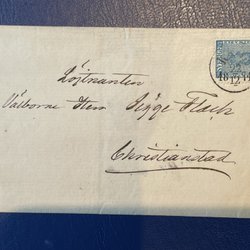 Löjtnanten
Välborne Herr Sixge Flach
Christianstad